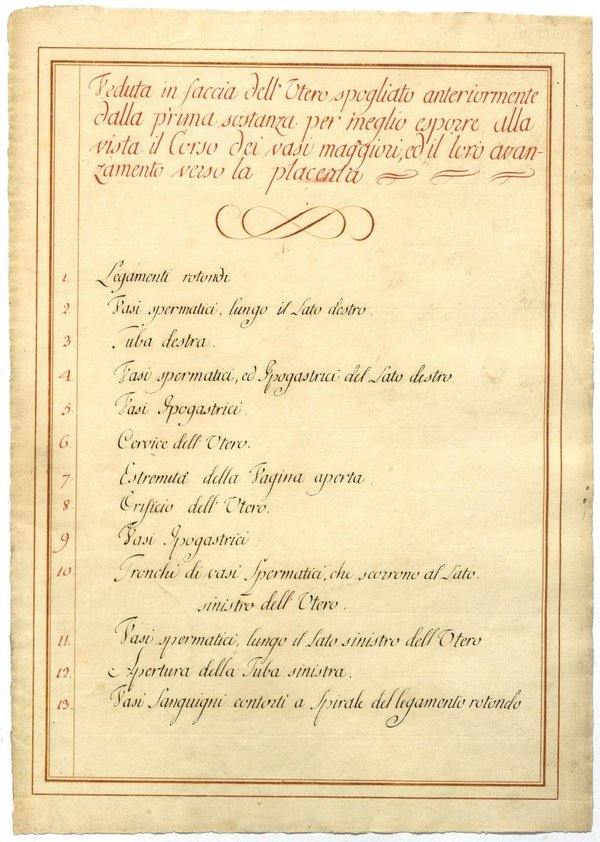 Veduta in faccia dell' Utero spogliato anteriormente
dalla prima sostanza per meglio esporre alla
vista il Corso dei vasi maggiori, ed il loro avan-
zamento verso la placenta
1. Legamenti rotondi
2. Vasi spermatici, lungo il Lato destro.
3 Tuba destra.
4 Vasi spermatici, ed Ipogastrici del Lato destro
5. Vasi Ipogastrici.
6 Cervice dell' Utero.
7 Estremità della Vagina aperta.
8 Orificio dell' Utero.
9 Vasi Ipogastrici
10. Tronchi di vasi Spermatici, che scorrono al Lato.
sinistro dell' Utero.
11. Vasi spermatici, lungo il Lato sinistro dell' Utero
12. Apertura della Tuba sinistra.
13. Vasi Sanguigni contorti a Spirale del legamento rotondo